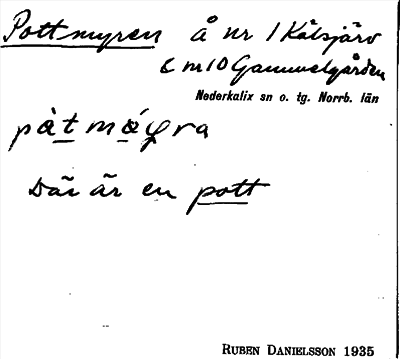 Pottmyren å nr 1 Kälsjärv
& nr 10 Gammelgården
Nederkalix sn o. tg. Norrb. län
Där är en pott
RUBEN DANIELSSON 1935